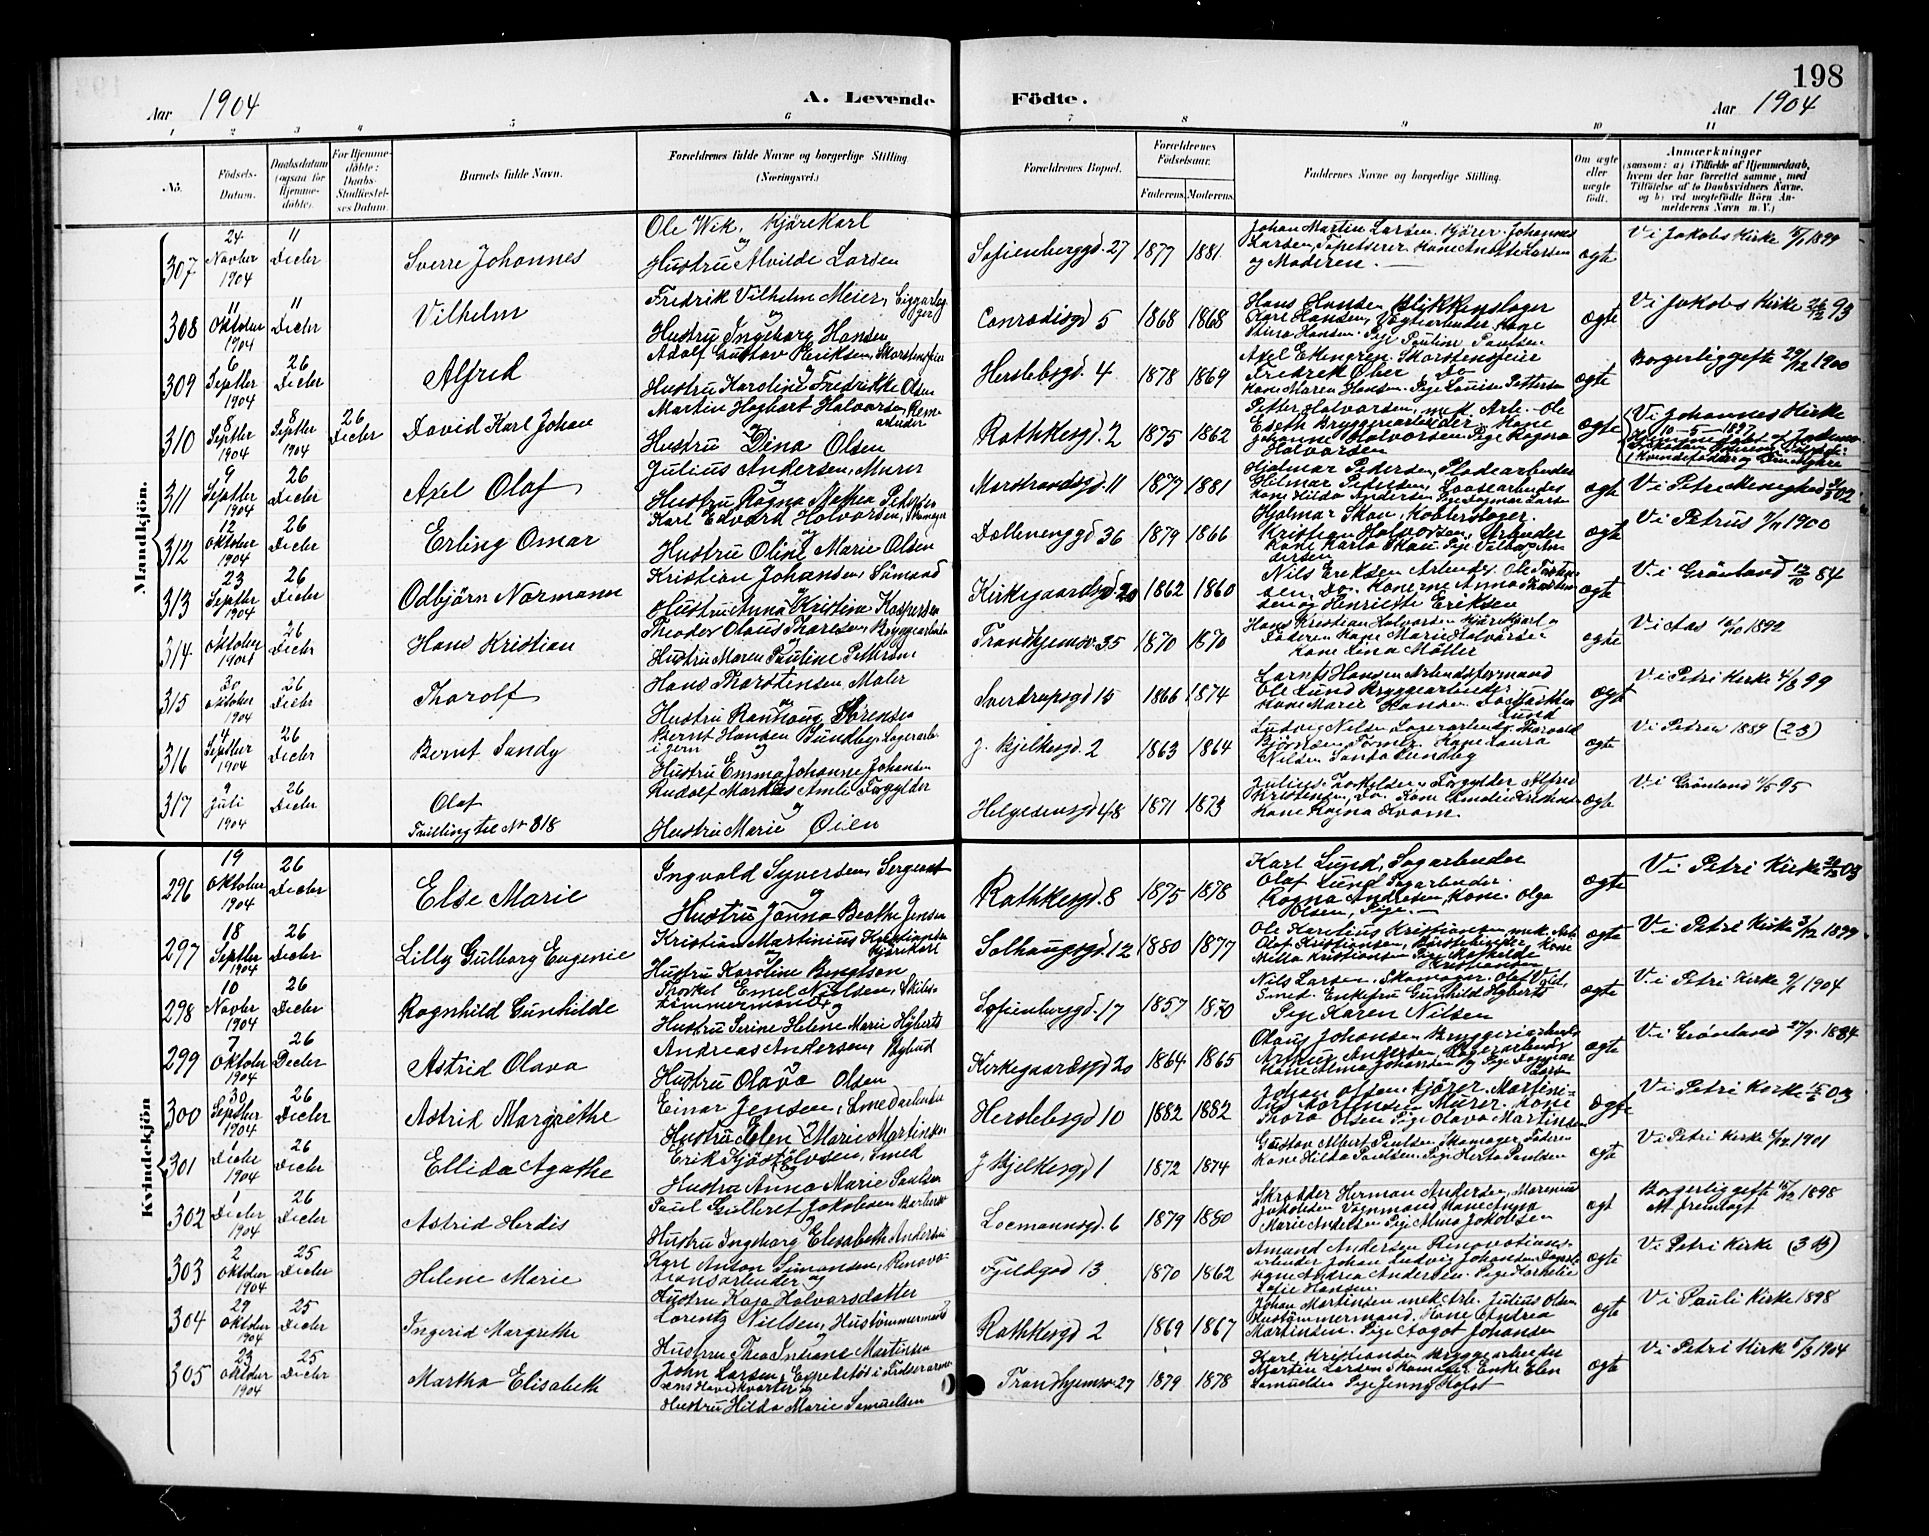 198
Aar 1904 A. Levende Födte. Aar 1904
1 2 3 4 5 6 7 8 9 10 11
No. Födsels-Datum. Daabsdatum (ogsaa for Hjemme-döbte). For Hjemme-döbte: Daabs-Stadfæstel-ses Datum. Barnets fulde Navn. Forældrenes fulde Navne og borgerlige Stilling (Næringsvei.) Forældrenes Bopæl. Forældrenes Födselsaar. Faderens. Moderens. Faddernes Navne og borgerlige Stilling. Om ægte eller uægte födt. Anmærkninger (saasom: a) i Tilfælde af Hjemmedaab, hvem der har forrettet samme, med Tilföielse af to Daabsvidners Navne, og b) ved uægtefödte Börn An-melderens Navn m. V.)
Mandkjön.
307 24 Novber 1904 11 Decbr Sverre Johannes Ole Wik, Kjörekarl og Hustru Alvilde Larsen Sofienberggd. 27 1877 1881 Johan Martin Larsen, Kjörer. Johannes Larsen, Tapetserer. Kone Anette Larsen og Moderen. ægte Vi Jakobs Kirke 1899
308 11 Oktober 1904 11 Decbr Vilhelm Fredrik Vilhelm Meier, og Hustru Ingeborg Hansen Conradisgd 5 1868 1868 Hans Hansen, Blikkenslager Karl Hansen, Kone Stina Hansen. Pige Pauline Paulsen ægte Vi Jakobs Kirke 26/12 93
309 6 Septbr 1904 26 Decbr Alfred Adolf Gustav Eriksen, Skorstensfeier og Hustru Karoline Fredrikke Olsen Herslebsgd. 4 1878 1869 Axel Skorstensfeier Fredrik do Kone Maren Hansen. Pige Louise Pettersen ægte Borgerlig gefte 29/12 1900
310 8 Septbr 1904 8 Septbr 1904 26 Decbr David Karl Johan Martin Hagbart Halvorsen, Rem-arbeider og Hustru Dina Olsen Rathkesgd. 2 1875 1862 Petter Halvorsen, mek. Arb. Ole Bryggeriarbeider. Kone Johanne Halvorsen. Pige Ragna Halvorsen ægte Vi Johannes Kirke 10-5-1897
311 9 Septbr 1904 26 Decbr Axel Olaf Julius Andersen, Murer Hustru Ragna Mathea Pedersen Marstrandsgd. 11 1877 1881 Hjalmar Pedersen, Pladearbeider Hilmar Pedersen, Kone Hilda Andersen Pige Dagmar Larsen ægte Vi Petri Menighed 02
312 12 Oktober 1904 26 Decbr Erling Omar Karl Edvard Halvorsen, Skomager og Hustru Oline Marie Olsen Dælenenggd 36 1879 1866 Hjalmar Skau, Kobberslager. Kristian Halvorsen, Arbeider Kone Karla Skau. Pige ægte Vi Petrus 1900
313 23 Septbr 1904 26 Decbr Odbjörn Normann Kristian Johansen, Sömand og Hustru Anna Kristine Kaspersen Kirkegaardsgd 20 1862 1860 Nils Eriksen Arbeidr. Ole do. Konerne Anna og Henriette Eriksen ægte Vi Grönland 12/10 84
314 Oktober 1904 26 Decbr Hans Kristian Theodor Olaus Thoresen, Bryggearbeider Hustru Maren Pauline Pettersen Trondhjemsv. 35 1870 1870 Hans Kristian Halvorsen Kjörekarl Faderen Kone Marie Halvorsen Kone Lina Möller ægte Vi Aas 1892
315 30 Oktober 1904 26 Decbr Thorolf Hans Thorstensen Maler og Hustru Ranhaug Sörensen Sverdrupsgd 15 1866 1874 Hansen Arbeidsformand Ole Lund Bryggearbeider Kone Marie Hansen. Lund ægte Vi Petri Kirke 4/8 99
316 4 Septbr 1904 26 Decbr Bernt Sandy Bernt Hansen Sundby, Lagerarb. i jern og Hustru Emma Johanne Johansen J. Bjelkesgd. 2 1863 1864 Ludvig Nilsen Lagerarbeid. Thorvald Björnsen Former. Kone Laura Nilsen Sanda Sundby ægte Vi Petri 1889 (23)
317 9 Juli 1904 26 Decbr Olaf Tvilling til No 318 Rudolf Markus Amli Forgylder og Hustru Marie Öien Helgesensgd 48 1871 1873 Julius Forgylder Alfred Kristensen, do. Kone Kone Ragna Kvam. ægte Vi Grönland 95
Kvindekjön
296 19 Oktober 1904 26 Decbr Else Marie Ingvald Syversen, Sergeant og Hustru Janna Beathe Jensen Rathkesgd. 8 1875 1878 Karl Lund, Sagarbeider Olaf Lund Sagarbeider. Ragna Andresen, Kone. Olga Olsen, Pige. ægte Vi Petri Kirke 03
297 18 Septbr 1904 26 Decbr Lilly Gulborg Eugenie Kristian Martinius Kristiansen Kjörekarl og Hustru Karoline Bengtson Solhaugsgd. 12 1880 1877 Ole Karelius Kristiansen mek. Arb. Olaf Kristiansen, Kone Milla Kristiansen Pige Mathilde Kristiansen ægte Vi Petri Kirke 3/12 1899
298 10 Novbr 1904 26 Decbr Ragnhild Gunhilde Thorkel Emel Nielsen, Skibs-tömmermand og Hustru Serine Helene Marie Sofienberggd. 17 1857 1870 Nils Larsen, Skomager. Olaf Smed. Enkefru Gunhild Pige Karen Nilsen ægte Vi Petri Kirke 1904
299 7 Oktober 1904 26 Decber Astrid Olava Andreas Andersen, Bybud og Hustru Olava Olsen Kirkegaardsgd 20 1864 1865 Olaus Johansen Bryggeriarbeider Andersen, Lagerarbeider Kone Anna Johansen og Pige Dagmar Larsen ægte Vi Grönland 1884
300 30 Septber 1904 26 Decber Astrid Margrethe Einar Jensen, Smedarbeider og Hustru Elen Marie Martinsen Herslebsgd 10 1882 1882 Johan Olsen, Kjörer. Martinius Murer. Kone Thora Olsen Pige Olava Martinsen ægte Vi Petri Kirke 03
301 6 Decbr 1904 26 Decbr Ellida Agathe Erik Kjöstölvsen, Smed og Hustru Anna Marie Paulsen J Bjelkesgd 1 1872 1874 Gustav Albert Paulsen Skomager, Faderen Kone Hilda Paulsen. Pige Herta Paulsen ægte Vi Petri Kirke 1901
302 1 Decbr 1904 26 Decbr Astrid Herdis Paul Gulbret Jakobsen Hustru Ingeborg Elisabeth Andersen Loemannsgd. 6 1879 1880 Skrædder Herman Andersen, Jakobsen Vognmand, Kone Anna Marie Andersen Pige Alma Jakobsen ægt Borgerlig gefte 15/12 1898 Att. fremlagt
303 2 Oktober 1904 25 Decbr Helene Marie Karl Anton Simonsen, Renova-tionsarbeider og Hustru Kaja Halvorsdatter Fjeldgad 13 1870 1862 Amand Andersen Renovations-arbeider Johan Ludvig Johansen Kone Andrea Andersen. Pige Hansen. ægte Vi Petri Kirke
304 29 Oktober 1904 25 Decbr Ingerid Margrethe Lorentz Nielsen, Hustömmermand og Hustru Thea Indiane Martinsen Rathkesgd 2 1869 1867 Johan Martinsen mek. Arb. Julius Olsen Hustömmermand, Kone Andrea Martinsen. Pige Aagot Johansen ægte Vi Pauli Kirke 1898
305 23 Oktober 1904 25 Decbr Martha Elisabeth John Larsen, og Hustru Hilda Marie Samuelsen Trondhjemsv. 27 1879 1878 Karl Kristiansen Bryggearbeider Martin Larsen Skomager. Enke Elen Samuelsen Pige Jenny ægte Vi Petri Kirke 5/3 1904